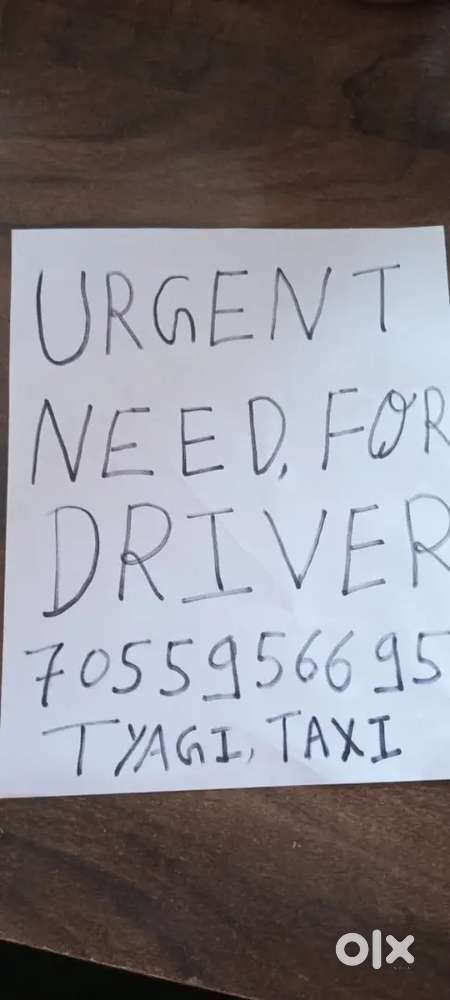 URGENT
NEED, FOR
DRIVER
7055956695
TYAGI, TAXI
olx